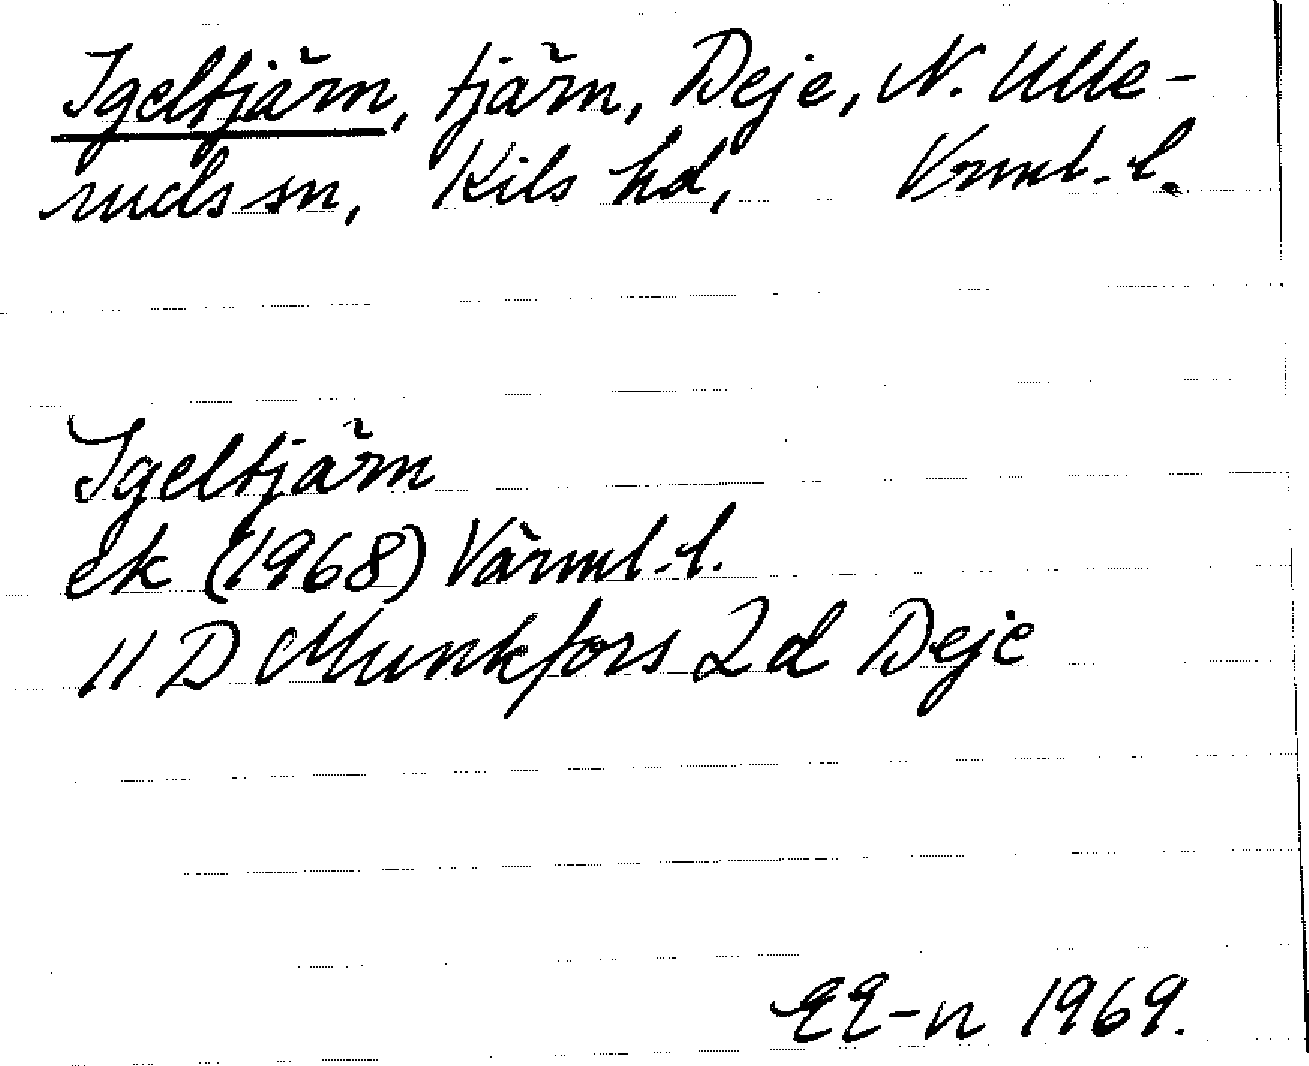 Igeltjärn, tjärn, Deje, N. Ulle-
ruds sn, Kils hd, Vrml. l.
Igeltjärn
ek (1968) Värml. l.
11 D Munkfors 2d Deje
EE-n 1969.